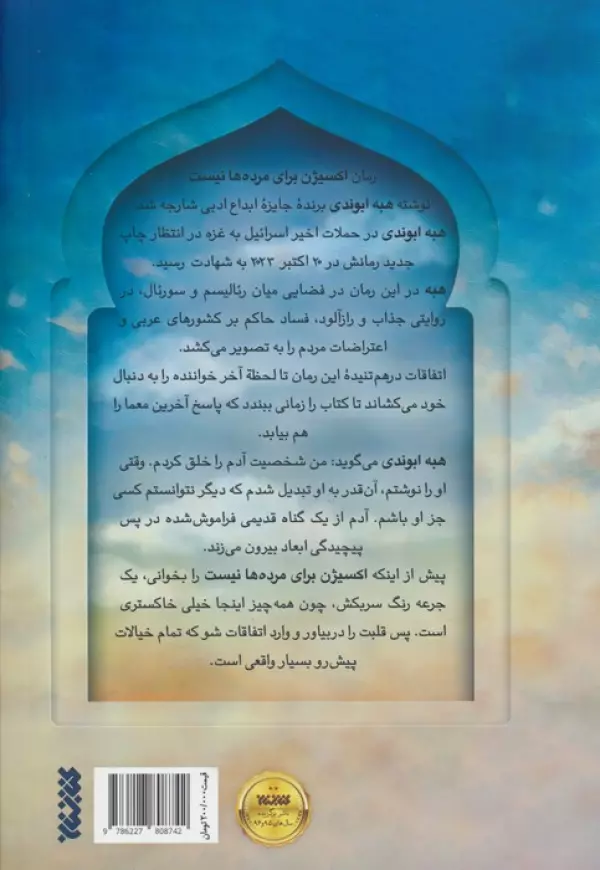 رمان اکسیژن برای مرده‌ها نیست
نوشته هبه ابوندی برندهٔ جایزهٔ ابداع ادبی شارجه شد.
هبه ابوندی در حملات اخیر اسرائیل به غزه در انتظار چاپ
جدید رمانش در ۲۰ اکتبر ۲۰۲۳ به شهادت رسید.
هبه در این رمان در فضایی میان رئالیسم و سورئال، در
روایتی جذاب و رازآلود، فساد حاکم بر کشورهای عربی و
اعتراضات مردم را به تصویر می‌کشد.
اتفاقات درهم‌تنیدهٔ این رمان تا لحظهٔ آخر خواننده را به دنبال
خود می‌کشاند تا کتاب را زمانی ببندد که پاسخ آخرین معما را
هم بیابد.
هبه ابوندی می‌گوید: من شخصیت آدم را خلق کردم. وقتی
او را نوشتم، آن‌قدر به او تبدیل شدم که دیگر نتوانستم کسی
جز او باشم. آدم از یک گناه قدیمی فراموش‌شده در پس
پیچیدگی ابعاد بیرون می‌زند.
پیش از اینکه اکسیژن برای مرده‌ها نیست را بخوانی، یک
جرعه رنگ سربکش، چون همه‌چیز اینجا خیلی خاکستری
است. پس قلبت را دربیاور و وارد اتفاقات شو که تمام خیالات
پیش‌رو بسیار واقعی است.
کتابستان
قیمت ۲۰۰/۰۰۰ تومان
9 786227 808742
ناشر برگزیده
سال‌های ۹۵ و ۹۶